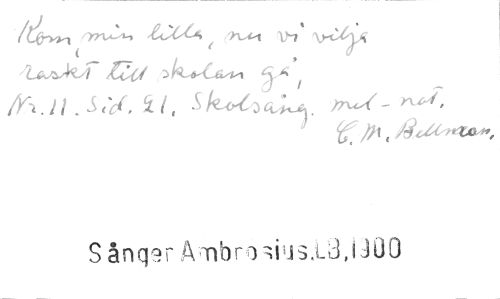 Kom, min lilla, nu vi vilja
raskt till skolan gå,
Nr. 11. Sid. 21. Skolsång. mel-not.
C. M. Bellman.
Sånger Ambrosius.LB,1900